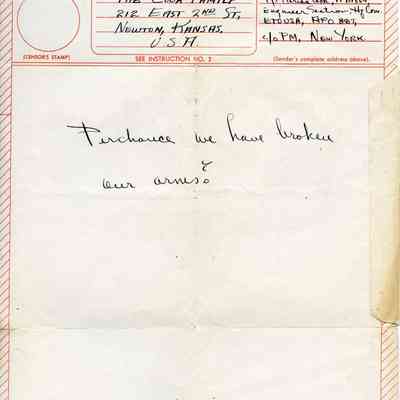 THE COOK FAMILY
212 EAST 2ND ST,
NEWTON, KANSAS,
U S A.
Engineer Section Hq Com
ETOUSA, APO 887,
c/o PM, NEW YORK
(CENSOR'S STAMP)
SEE INSTRUCTION NO. 2
(Sender's complete address above).
Perchance we have broken
our arms?